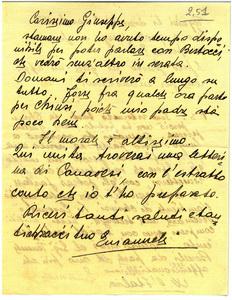 2,51
Carissimo Giuseppe
stamani non ho avuto tempo dispo
nibile per poter parlare con Bertocci
che vedrò senz'altro in serata.
Domani ti scriverò a lungo su
tutto. Forse fra qualche ora parto
per Chiusi, poiché mio padre sta
poco bene.
Il morale è altissimo.
Qui unita troverai una letteri
na di Canavesi, con l'estratto
conto che io t'ho preparato.
Ricevi tanti saluti e tan